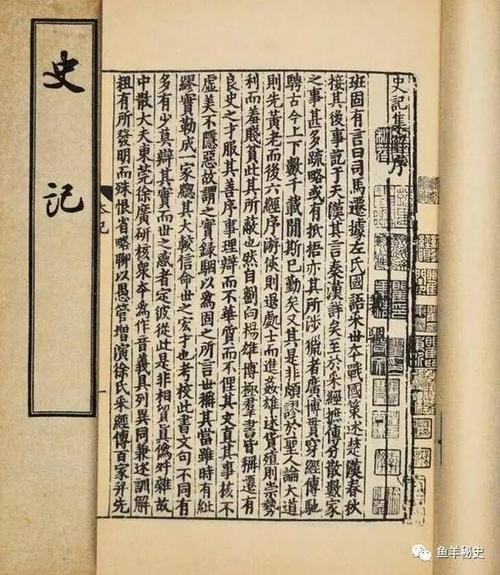 史記
史記集解序
班固有言曰司馬遷據左氏國語采世本戰國策述楚漢春秋
接其後事訖于天漢其言秦漢詳矣至於采經摭傳分散數家
之事甚多疏略或有抵捂亦其所涉獵者廣博貫穿經傳馳
騁古今上下數千載間斯已勤矣又其是非頗謬於聖人論大道
則先黄老而後六經序游俠則退處士而進姦雄述貨殖則崇勢
利而羞賤貧此其所蔽也然自劉向楊雄博極羣書皆稱遷有
良史之才服其善序事理辯而不華質而不俚其文直其事核不
虛美不隱惡故謂之實録駰以為固之所言世稱其當雖時有紕
繆實勒成一家總其大較信命世之宏才也考校此書文句不同有
多有少莫辯其實而世之惑者定彼從此是非相貿真偽舛雜故
中散大夫東莞徐廣研核衆本為作音義具列異同兼述訓解
粗有所發明而殊恨省略聊以愚管增演徐氏采經傳百家并先
鱼羊秘史